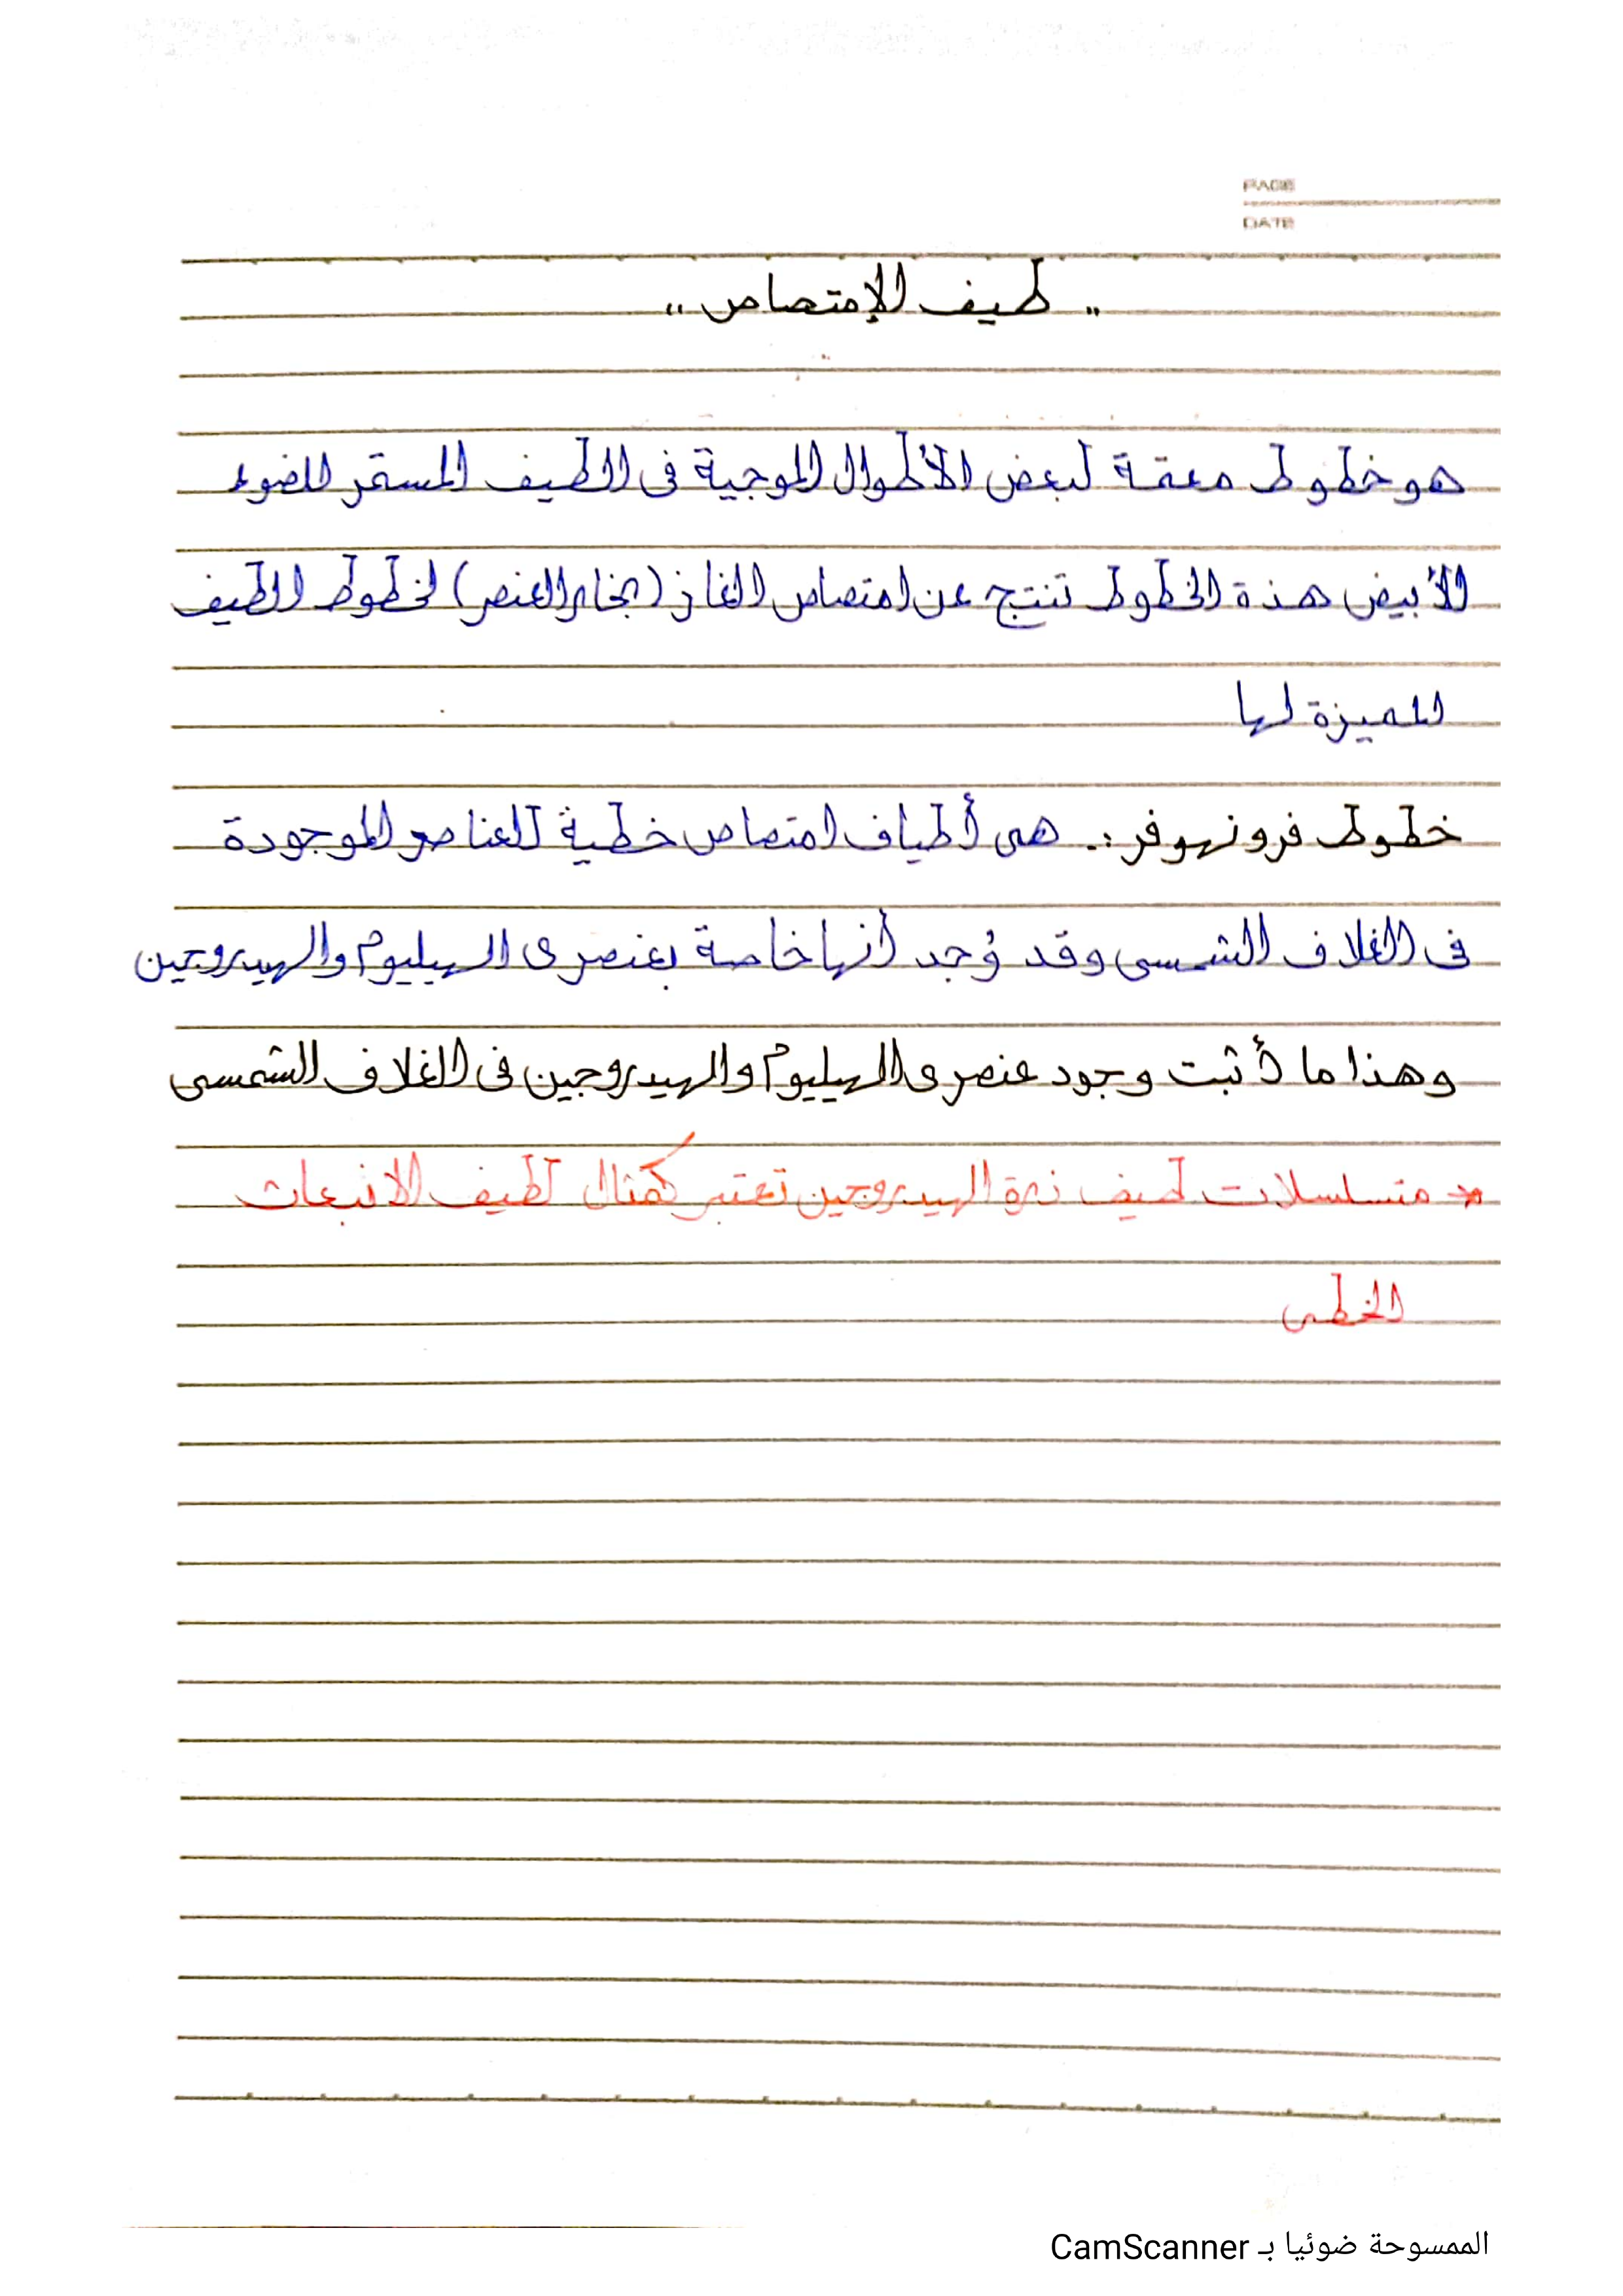 PAGE
DATE
" طيف الإمتصاص "
هو خطوط معتمة لبعض الأطوال الموجية فى الطيف المستمر للضوء
الأبيض هذة الخطوط تنتج عن امتصاص الغاز (بخار العنصر) لخطوط الطيف
المميزة لها
خطوط فرونهوفر :- هى أطياف امتصاص خطية للعناصر الموجودة
فى الغلاف الشمسى وقد وُجد أنها خاصة بعنصرى الهيليوم والهيدروجين
وهذا ما أثبت وجود عنصرى الهيليوم والهيدروجين فى الغلاف الشمسى
* متسلسلات طيف ذرة الهيدروجين تعتبر كمثال لطيف الانبعاث
الخطى
الممسوحة ضوئيا بـ CamScanner